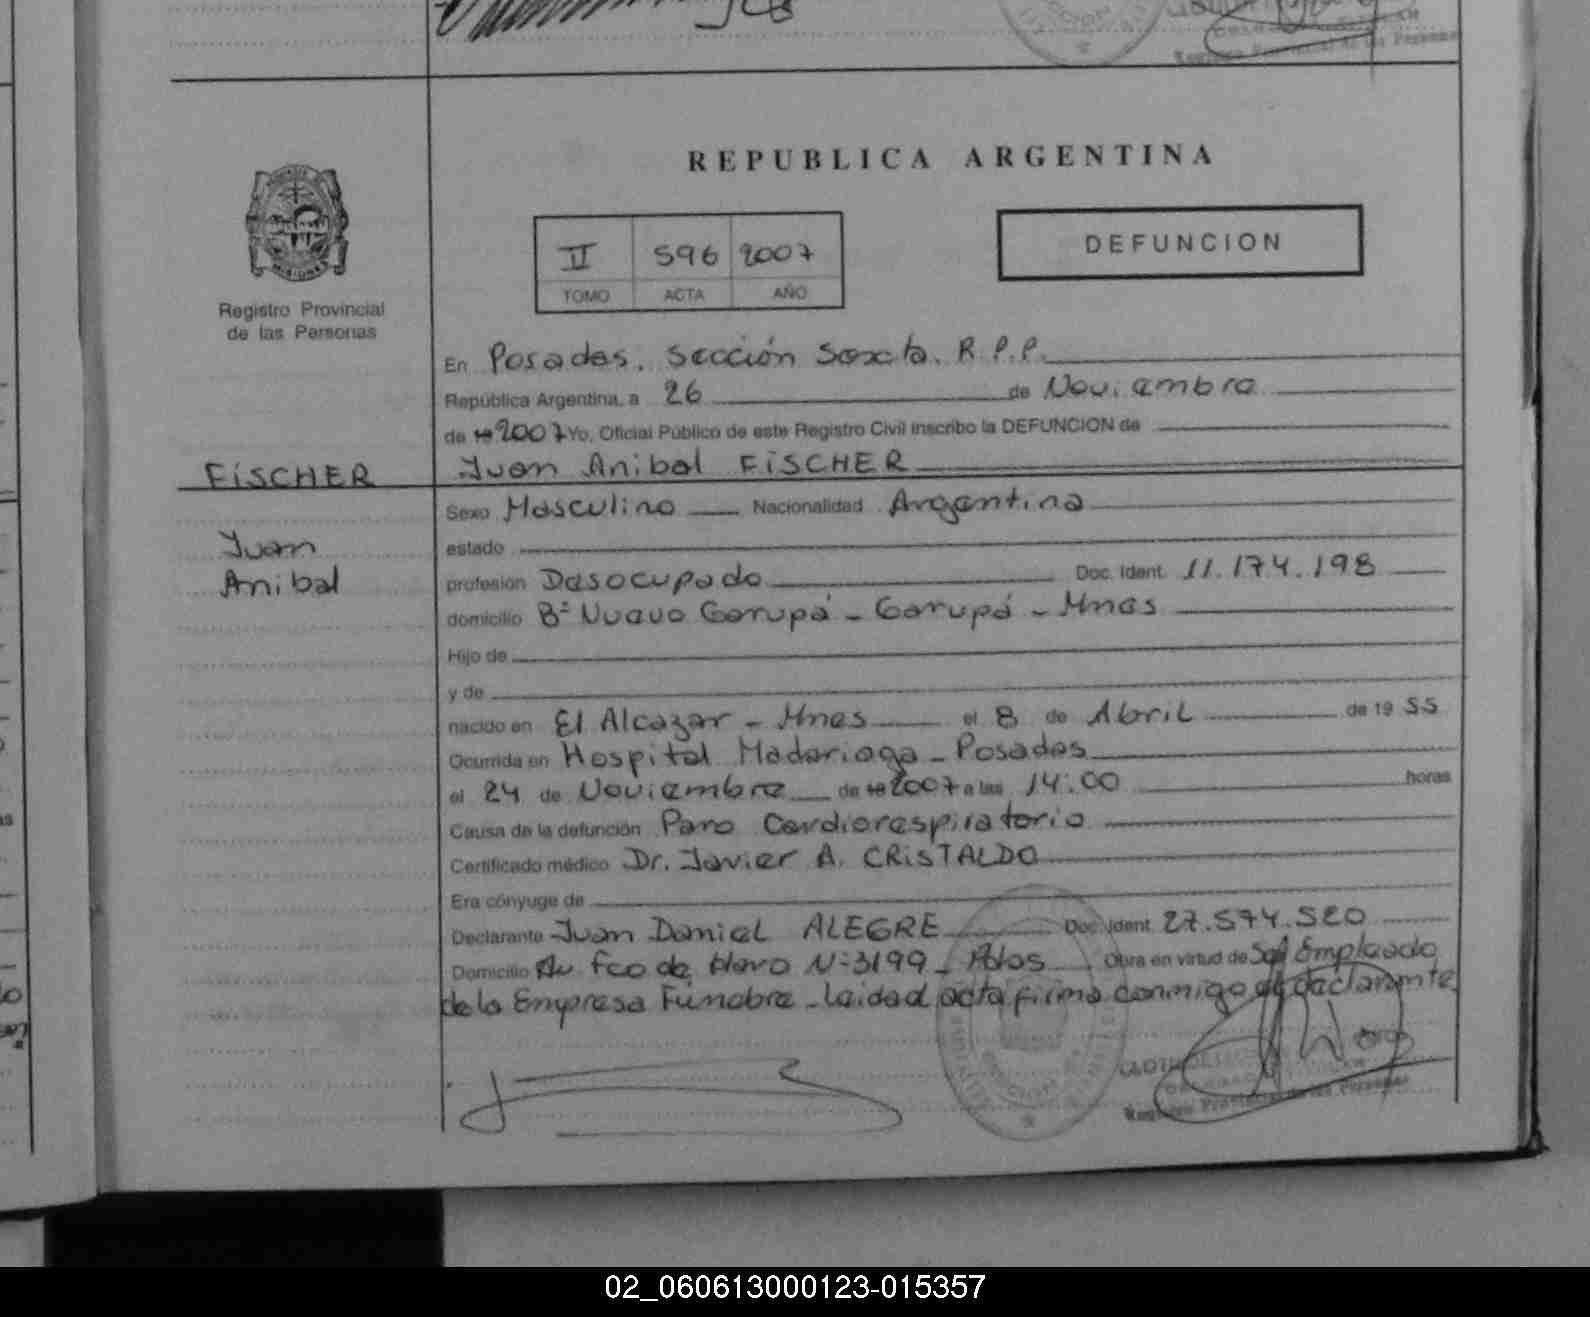 REPUBLICA ARGENTINA
MISIONES
Registro Provincial
de las Personas
II 596 2007
TOMO ACTA AÑO
DEFUNCION
En Posadas, Sección Sexta. R.P.P.
República Argentina, a 26 de Noviembre
de 19 2007 Yo, Oficial Público de este Registro Civil inscribo la DEFUNCION de
FISCHER
Juan Anibal FISCHER
Juan
Anibal
Sexo Masculino Nacionalidad Argentina
estado
profesión Desocupado Doc. Ident. 11.174.198
domicilio Bº Nuevo Garupá - Garupá - Mnes
Hijo de
y de
nacido en El Alcazar - Mnes el 8 de Abril de 19 55
Ocurrida en Hospital Madariaga - Posadas
el 24 de Noviembre de 19 2007 a las 14:00 horas
Causa de la defunción Paro Cardiorespiratorio
Certificado médico Dr. Javier A. CRISTALDO
Era cónyuge de
Declarante Juan Daniel ALEGRE Doc. Ident. 27.574.520
Domicilio Av Fco de Haro N-3199 - Pdas Obra en virtud de Ser Empleado
de la Empresa Fúnebre - Leída el acta firma conmigo el declarante
Registro Provincial de las Personas
02_060613000123-015357